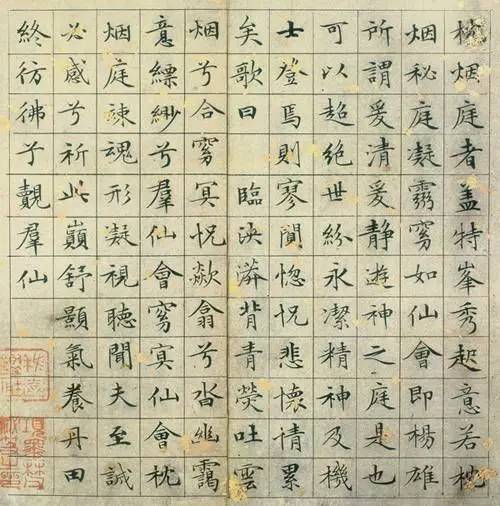 枕烟庭者盖特峯秀起意若枕
烟秘庭凝霛窅如仙會即楊雄
所謂爰清爰靜遊神之庭是也
可以超絕世紛永潔精神及機
士登焉則寥閴惚怳悲懷情累
矣歌曰 臨泱漭背青熒吐雲
烟兮合窅冥怳欻翕兮沓幽靄
意縹緲兮羣仙會窅冥仙會枕
烟庭竦魂形凝視聽聞夫至誠
必感兮祈此巔舒顥氣養丹田
終彷彿兮覿羣仙